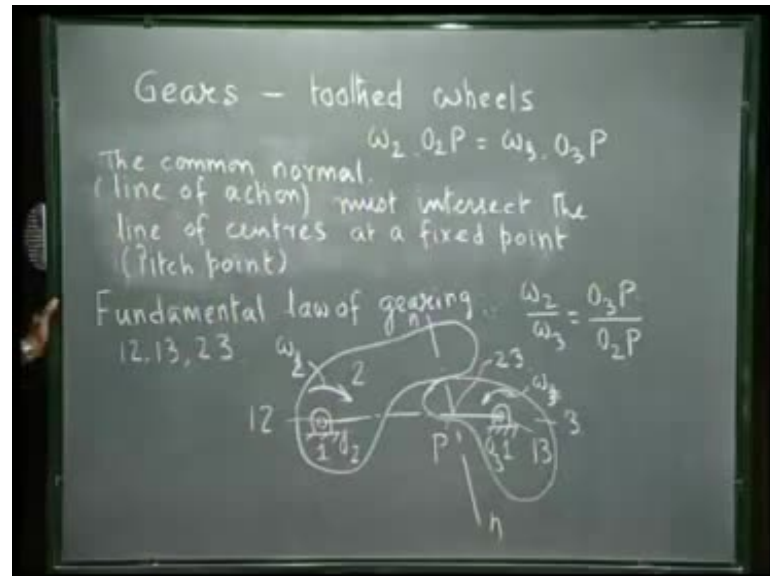 Gears – toothed wheels
ω₂ . O₂P = ω₃ . O₃P
The common normal.
(line of action) must intersect the
line of centres at a fixed point
(Pitch point)
Fundamental law of gearing. ω₂/ω₃ = O₃P/O₂P
12, 13, 23
n
ω₂ 2 23 ω₃
12 1 O₂ P O₃ 1 13 3
n